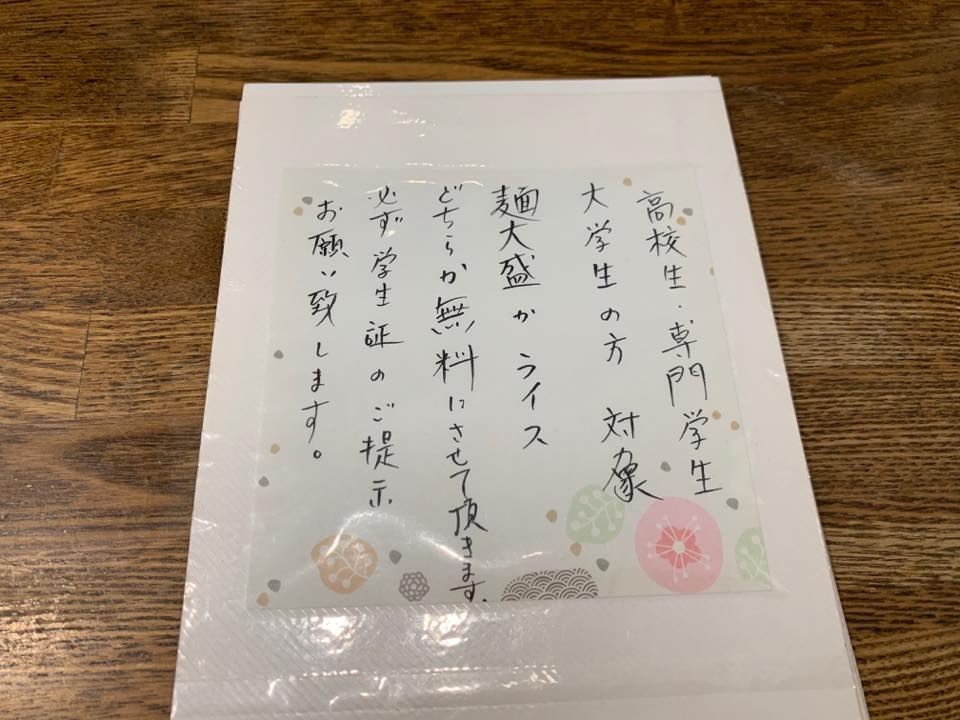 高校生・専門学生
大学生の方 対象
麺大盛か ライス
どちらか無料にさせて頂きます.
必ず学生証のご提示
お願い致します。